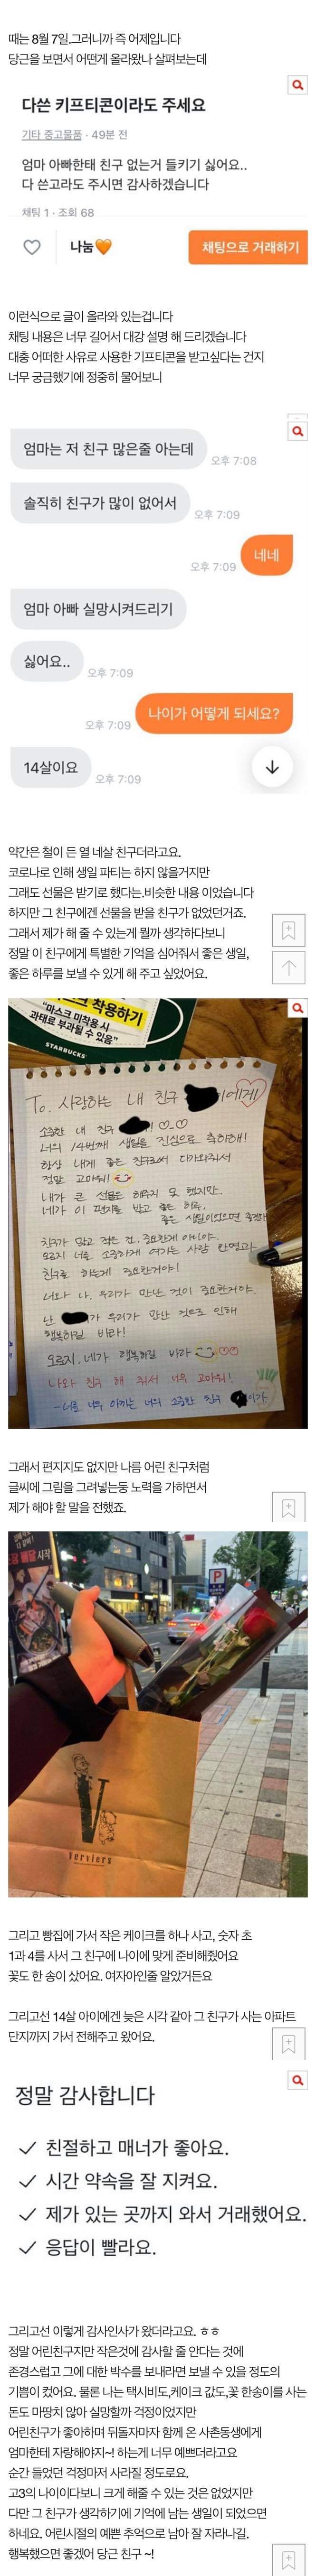 때는 8월 7일.그러니까 즉 어제입니다
당근을 보면서 어떤게 올라왔나 살펴보는데
다쓴 키프티콘이라도 주세요
기타 중고물품 · 49분 전
엄마 아빠한태 친구 없는거 들키기 싫어요..
다 쓴고라도 주시면 감사하겠습니다
채팅 1 · 조회 68
나눔🧡
채팅으로 거래하기
이런식으로 글이 올라와 있는겁니다
채팅 내용은 너무 길어서 대강 설명 해 드리겠습니다
대충 어떠한 사유로 사용한 기프티콘을 받고싶다는 건지
너무 궁금했기에 정중히 물어보니
엄마는 저 친구 많은줄 아는데
오후 7:08
솔직히 친구가 많이 없어서
오후 7:09
네네
오후 7:09
엄마 아빠 실망시켜드리기
싫어요..
오후 7:09
나이가 어떻게 되세요?
오후 7:09
14살이요
오후 7:09
약간은 철이 든 열 네살 친구더라고요.
코로나로 인해 생일 파티는 하지 않을거지만
그래도 선물은 받기로 했다는.비슷한 내용 이었습니다
하지만 그 친구에겐 선물을 받을 친구가 없었던거죠.
그래서 제가 해 줄 수 있는게 뭘까 생각하다보니
정말 이 친구에게 특별한 기억을 심어줘서 좋은 생일,
좋은 하루를 보낼 수 있게 해 주고 싶었어요.
착용하기
"마스크 미착용 시
과태료 부과될 수 있음"
STARBUCKS
To. 사랑하는 내 친구 이에게
소중한 내 친구 !
너의 14번째 생일을 진심으로 축하해!
항상 내게 좋은 친구로써 다가와줘서
정말 고마워!
내가 큰 선물은 해주지 못 했지만,
네가 이 편지를 받고 좋은 하루,
좋은 생일이었으면 좋겠어
친구가 많고 적은 건, 중요한게 아니야.
오로지 너를 소중하게 여기는 사람 한명과
친구를 하는게 중요한거야!
너나 나, 우리가 만난 것이 중요한거야.
난 가 우리가 만난 것으로 인해
행복하길 바라!
오로지. 네가 행복하길 바라
나와 친구 해 줘서 너무 고마워!
-너를 너무 아끼는 너의 소중한 친구 이가
그래서 편지지도 없지만 나름 어린 친구처럼
글씨에 그림을 그려넣는둥 노력을 가하면서
제가 해야 할 말을 전했죠.
배달 시작
P
Verviers
그리고 빵집에 가서 작은 케이크를 하나 사고, 숫자 초
1과 4를 사서 그 친구에 나이에 맞게 준비해줬어요
꽃도 한 송이 샀어요. 여자아인줄 알았거든요
그리고선 14살 아이에겐 늦은 시각 같아 그 친구가 사는 아파트
단지까지 가서 전해주고 왔어요.
정말 감사합니다
✓ 친절하고 매너가 좋아요.
✓ 시간 약속을 잘 지켜요.
✓ 제가 있는 곳까지 와서 거래했어요.
✓ 응답이 빨라요.
그리고선 이렇게 감사인사가 왔더라고요. ㅎㅎ
정말 어린친구지만 작은것에 감사할 줄 안다는 것에
존경스럽고 그에 대한 박수를 보내라면 보낼 수 있을 정도의
기쁨이 컸어요. 물론 나는 택시비도,케이크 값도,꽃 한송이를 사는
돈도 마땅치 않아 실망할까 걱정이었지만
어린친구가 좋아하며 뒤돌자마자 함께 온 사촌동생에게
엄마한테 자랑해야지~! 하는게 너무 예쁘더라고요
순간 들었던 걱정마저 사라질 정도로요.
고3의 나이이다보니 크게 해줄 수 있는 것은 없었지만
다만 그 친구가 생각하기에 기억에 남는 생일이 되었으면
하네요. 어린시절의 예쁜 추억으로 남아 잘 자라나길.
행복했으면 좋겠어 당근 친구 ~!